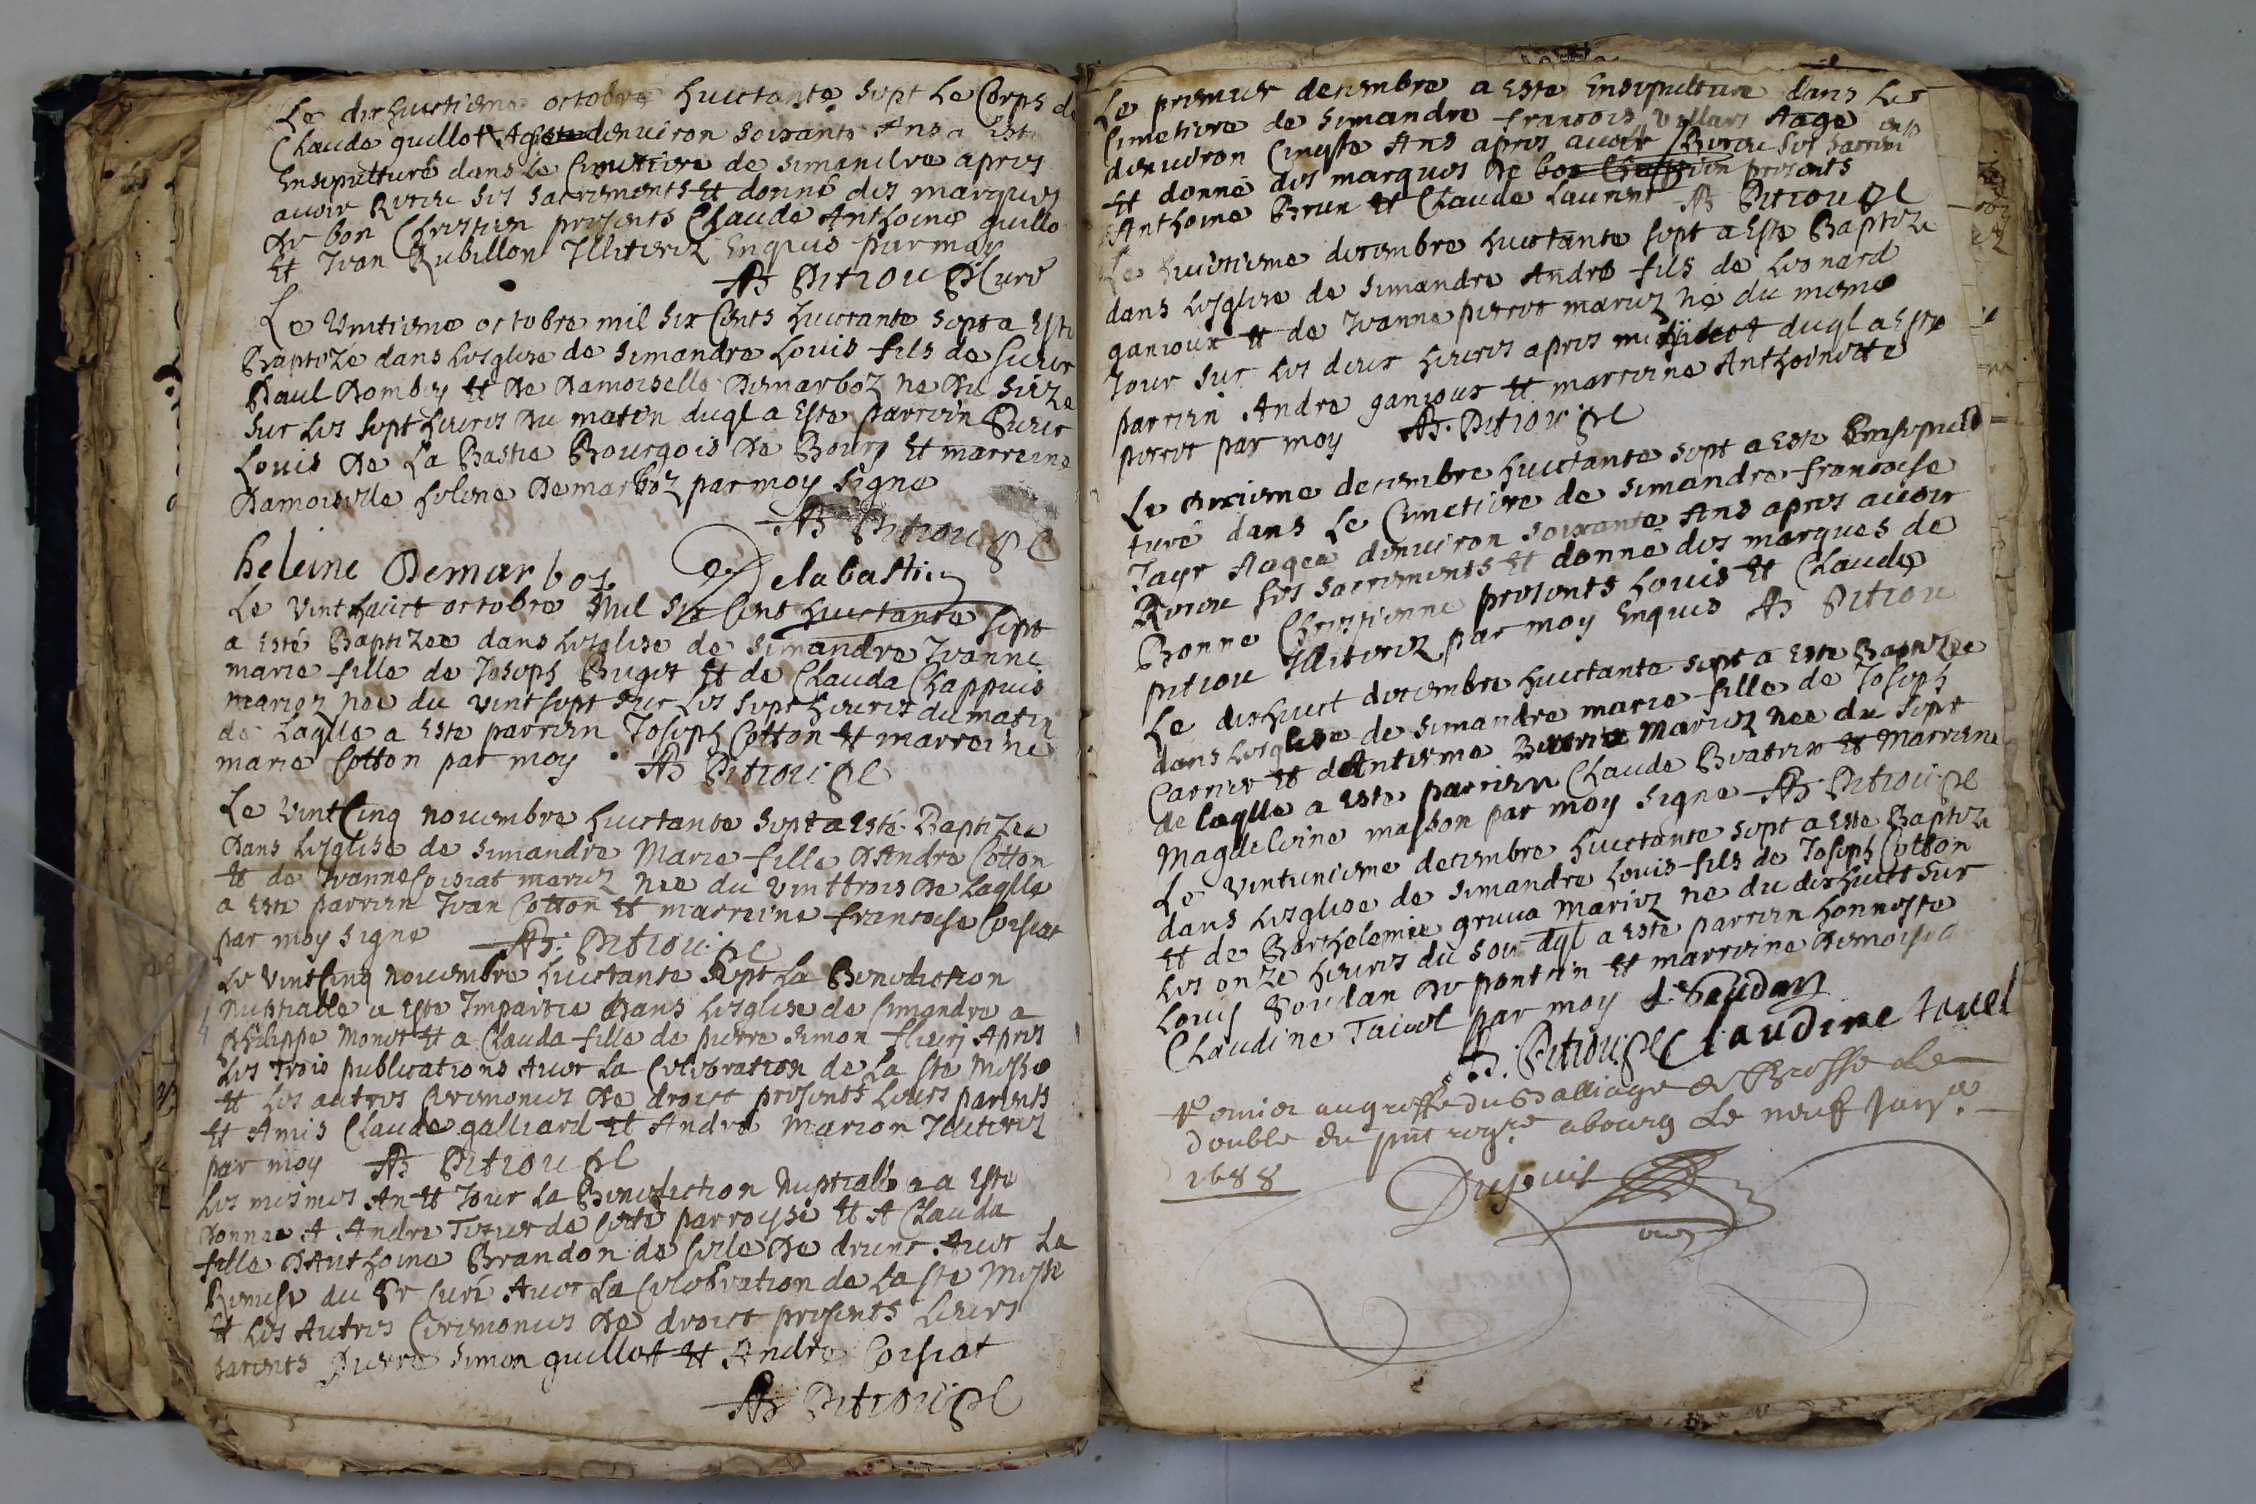 Le dixhuictiesme octobre huictante sept Le Corps de
Claude guillot Agé denuiron soixante Ans a Esté
Ensepulturé dans Le Cimetiere de simandre apres
auoir Receu ses sacrements Et donné des marques
De bon Chrestien presents Claude Anthoine guillo
Et Jean Rubillon Illiterez Enquis par moy
Petiou Curé
Le Vintiesme octobre mil six Cents huictante sept a Esté
Baptizé dans Lesglise de simandre Louis fils de sieur
Paul Dombey Et De Damoiselle Demarboz né Du sieze
sur Les sept heures Du matin duql a Esté parrein sieur
Louis De La Bastie Bourgois De Bourg Et marreine
Damoiselle heleine Demarboz par moy signé
Petiou
heleine Demarboz Delabastie
Le Vinthuict octobre Mil six Cens huictante sept
a Esté Baptizée dans Lesglise de simandre Jeanne
marie fille de Joseph Buget Et de Clauda Chappuis
mariez née du vintsept sur Les sept heures du matin
de Laqlle a Esté parrein Joseph Cotton Et marreine
marie Cotton par moy Petiou
Le VintCinq nouembre huictante sept a Esté Baptizée
Dans Lesglise de simandre Marie fille DAndre Cotton
Et de Jeanne Coisiat mariez née du Vinttrois De Laqlle
a Esté parrein Jean Cotton Et marreine francoise Coisiat
par moy signé Petiou
Le VintCinq nouembre huictante sept La Benediction
Nuptialle a Esté Impartie Dans Lesglise de simandre a
Philippe Monet Et a Clauda fille de pierre simon fleury Apres
Les trois publications Auec La Celebration de La ste Messe
Et Les autres Ceremonies De droict presents Leurs parents
Et Amis Claude galliard Et André Marion Illiterez
par moy Petiou
Les mesmes An Et Jour La Benediction Nuptialle a Esté
Donnée A Andre de Cette parroysse Et A Clauda
fille DAnthoine Brandon de Celle De druns Auec La
Remise du Sr Curé Auec La Celebration de La ste Messe
Et Les Autres Ceremonies De droict presents Leurs
parents Pierre simon guillot Et Andre Coisiat
Petiou
Le premier decembre a Esté Ensepulturé dans Le
Cimetiere de simandre francois Vullars Aagé
denuiron Cinqte Ans apres auoir Receu ses sacrements
Et donné des marques De bon Chrestien presents
Anthoine Brun Et Claude Laurent Petiou
Le huictiesme decembre huictante sept a Esté Baptizé
dans Lesglise de simandre André fils de Leonard
ganioux Et de Jeanne perret mariez né du mesme
Jour sur Les deux heures apres midy duql a Esté
parrein Andre ganioux Et marreine Anthoinette
perret par moy Petiou
Le decembre huictante sept a Esté Ensepul
turé dans Le Cimetiere de simandre francoise
Jayr Aagée denuiron soixante Ans apres auoir
Receu ses sacrements Et donné des marques de
Bonne Chrestienne presents Louis Et Claude
petiou Illiterez par moy Enquis Petiou
Le dixhuict decembre huictante sept a Esté Baptizée
dans Lesglise de simandre marie fille de Joseph
Carrier Et dAntesme Beatrix Mariez née du sept
de laqlle a Esté parrein Claude Beatrix Et Marreine
Magdeleine masson par moy signé Petiou
Le Vintuniesme decembre huictante sept a Esté Baptizé
dans Lesglise de simandre Louis fils de Joseph Cotton
Et de Barthelemie gruua Mariez né du dixhuict sur
Les onze heures du soir dql a Esté parrein honneste
Louis soudan De pontein Et marreine Demoiselle
Claudine Tauel par moy
Petiou Claudine tauel
au greffe du Balliage de Bresse le
double du pnt regre a bourg Le neuf
1688
Dujouis